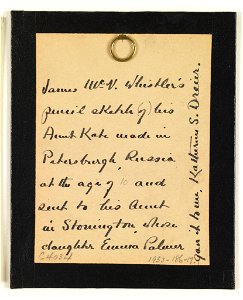 James McN. Whistler's
pencil sketch (of) his
Aunt Kate made in
Petersburgh, Russia
at the age of 10 and
sent to his Aunt
in Stonington whose
daughter Emma Palmer
gave it to me, Katherine S. Dreier.